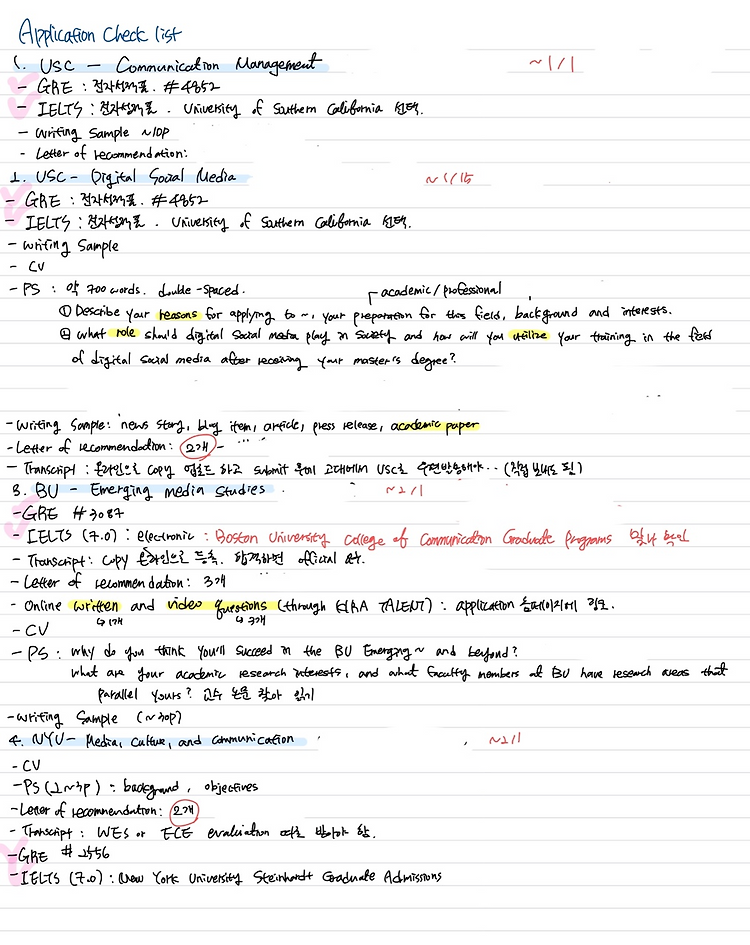 Application Check list
1. USC - Communication Management ~1/1
- GRE : 전자성적표. #4852
- IELTS : 전자성적표. University of Southern California 선택.
- Writing Sample ~10p
- Letter of recommendation:
2. USC - Digital Social Media ~1/15
- GRE : 전자성적표. #4852
- IELTS : 전자성적표. University of Southern California 선택.
- Writing Sample
- CV
- PS : 약 700 words. double-spaced. academic/professional
① Describe your reasons for applying to ~, your preparation for this field, background and interests.
② What role should digital social media play in society and how will you utilize your training in the field
of digital social media after receiving your master's degree?
- Writing Sample: news story, blog item, article, press release, academic paper
- Letter of recommendation: 2개 -
- Transcript : 온라인으로 copy 업로드 하고 submit 후에 고대에서 USC로 우편발송해야.. (직접 보내도 됨)
3. BU - Emerging Media Studies ~2/1
- GRE #3087
- IELTS (7.0) : electronic : Boston University College of Communication Graduate Programs 확인
- Transcript : copy 온라인으로 등록. 합격하면 official
- Letter of recommendation : 3개
- Online written and video questions (through KIRA TALENT) : application 홈페이지에 링크.
↳1개 ↳3개
- CV
- PS : Why do you think you'll succeed in the BU Emerging~ and beyond?
What are your academic research interests, and what faculty members at BU have research areas that
parallel yours? 교수 논문 찾아 읽기
- Writing Sample (~30p)
4. NYU - Media, Culture, and Communication ~2/1
- CV
- PS (2~3p) : background, objectives
- Letter of recommendation: 2개
- Transcript : WES or ECE evaluation 따로 받아야 함.
- GRE #2556
- IELTS (7.0) : New York University Steinhardt Graduate Admissions